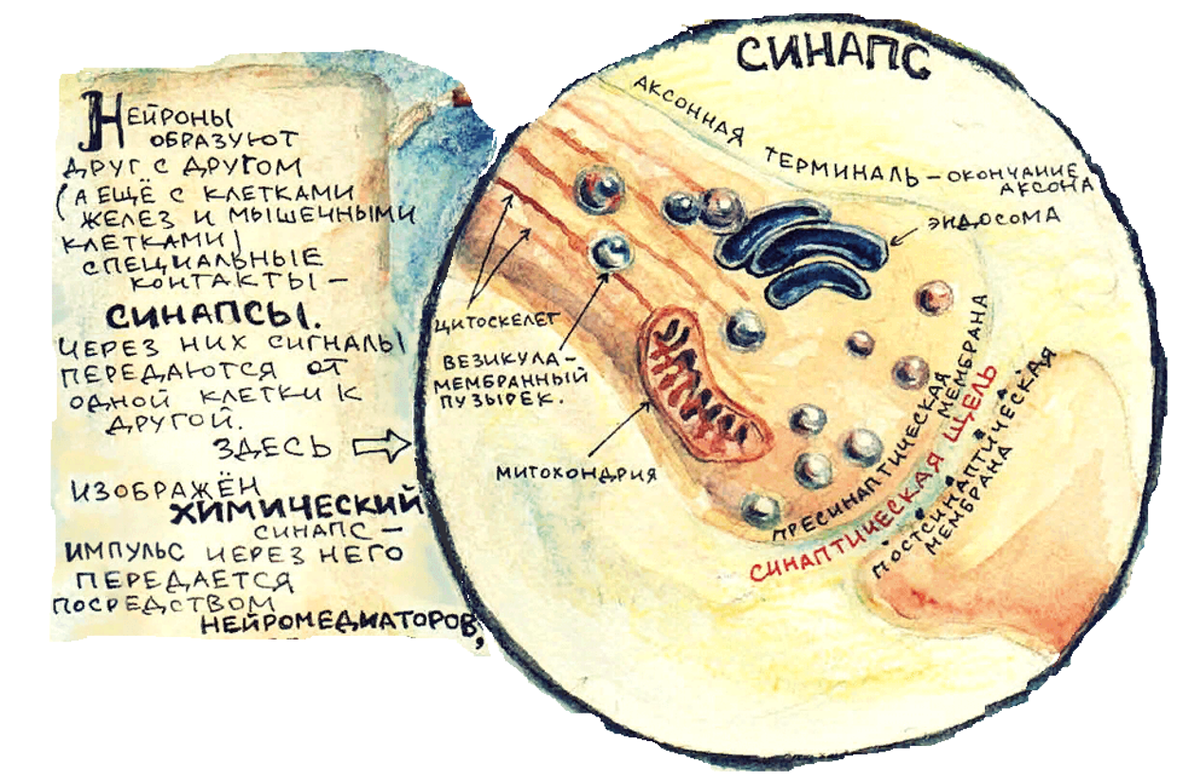 Нейроны
образуют
друг с другом
(а ещё с клетками
желез и мышечными
клетками)
специальные
контакты –
СИНАПСЫ.
Через них сигналы
передаются от
одной клетки к
другой.
Здесь
изображён
ХИМИЧЕСКИЙ
синапс –
импульс через него
передается
посредством
НЕЙРОМЕДИАТОРОВ,
СИНАПС
АКСОННАЯ ТЕРМИНАЛЬ – ОКОНЧАНИЕ
АКСОНА
ЭНДОСОМА
ЦИТОСКЕЛЕТ
ВЕЗИКУЛА –
МЕМБРАННЫЙ
ПУЗЫРЕК.
МИТОХОНДРИЯ
ПРЕСИНАПТИЧЕСКАЯ
МЕМБРАНА
СИНАПТИЧЕСКАЯ ЩЕЛЬ
ПОСТСИНАПТИЧЕСКАЯ
МЕМБРАНА